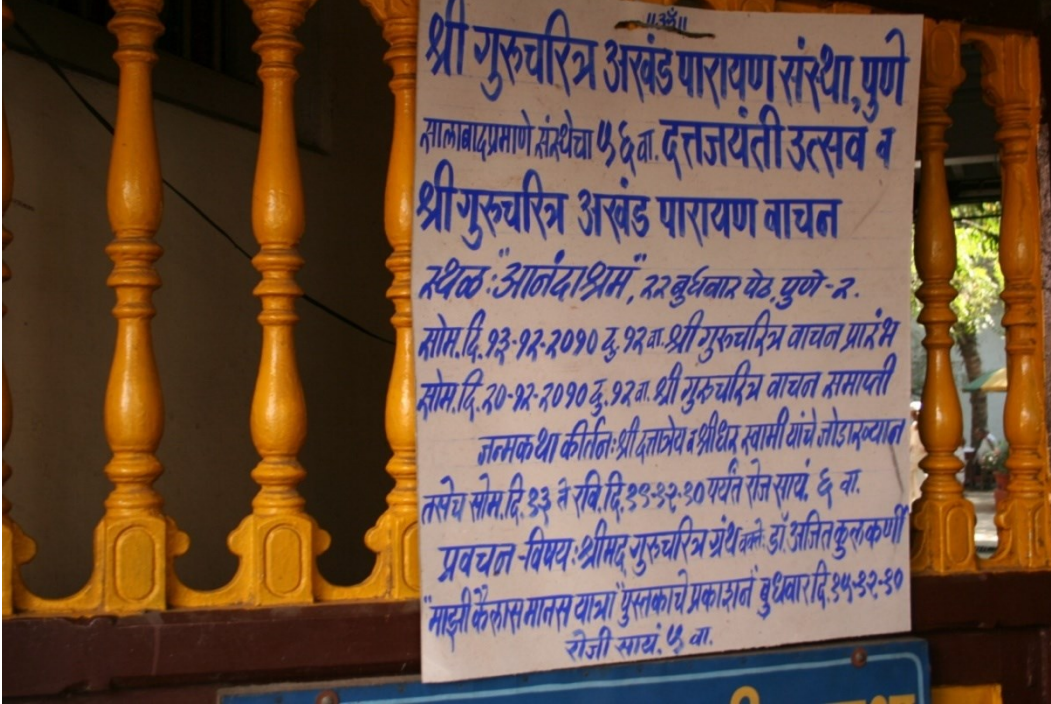 ॥ॐ॥
श्री गुरुचरित्र अखंड पारायण संस्था, पुणे
सालाबादप्रमाणे संस्थेचा ५६ वा. दत्तजयंती उत्सव व
श्री गुरुचरित्र अखंड पारायण वाचन
स्थळ: "आनंदाश्रम", २२ बुधवार पेठ, पुणे - २.
सोम. दि. १३-१२-२०१० दु. १२ वा. श्री गुरुचरित्र वाचन प्रारंभ
सोम. दि. २०-१२-२०१० दु. १२ वा. श्री गुरुचरित्र वाचन समाप्ती
जन्मकथा कीर्तन: श्री दत्तात्रेय व श्रीधर स्वामी यांचे जोडाख्यान
तसेच सोम. दि. १३ ते रवि. दि. १९-१२-१० पर्यंत रोज सायं. ६ वा.
प्रवचन - विषय: श्रीमद् गुरुचरित्र ग्रंथ वक्ते: डॉ. अजित कुलकर्णी
"माझी कैलास मानस यात्रा" पुस्तकाचे प्रकाशन बुधवार दि. १५-१२-१०
रोजी सायं. ५ वा.